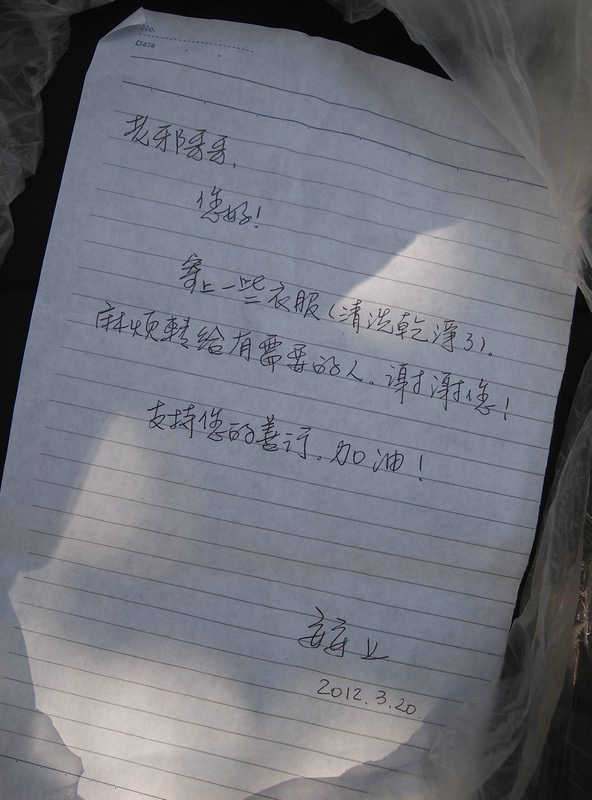 No.
Date
老邪哥哥,
您好!
寄上一些衣服(清洗乾淨了).
麻烦轉给有需要的人。谢谢您!
支持您的善订。加油!
上
2012.3.20